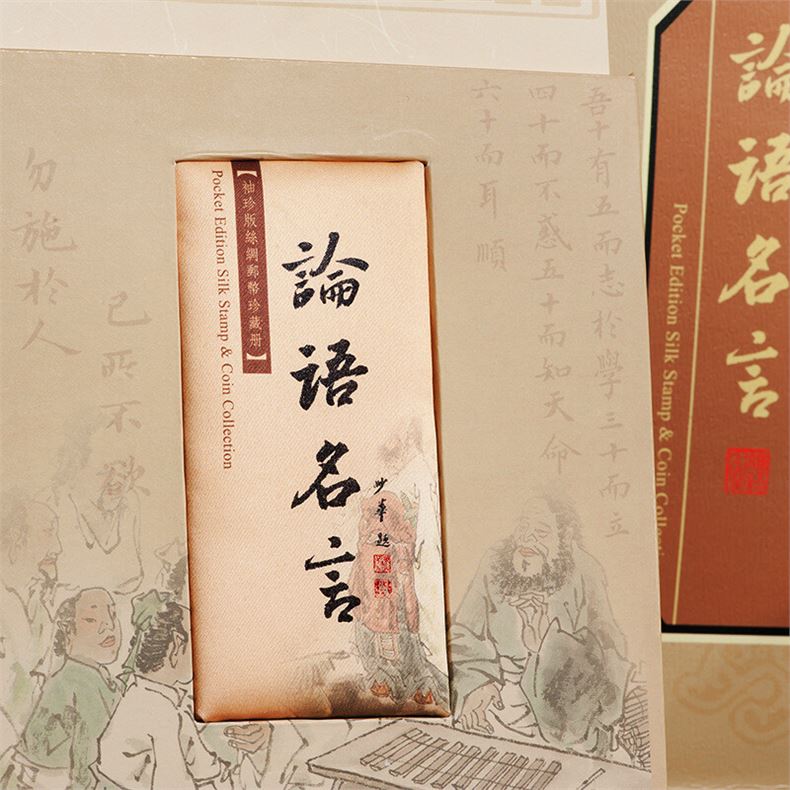 論語名言
Pocket Edition Silk Stamp & Coin Collecti
吾十有五而志於學三十而立
四十而不惑五十而知天命
六十而耳順
論語名言
華題
【袖珍版絲綢郵幣珍藏册】
Pocket Edition Silk Stamp & Coin Collection
己所不欲
勿施於人